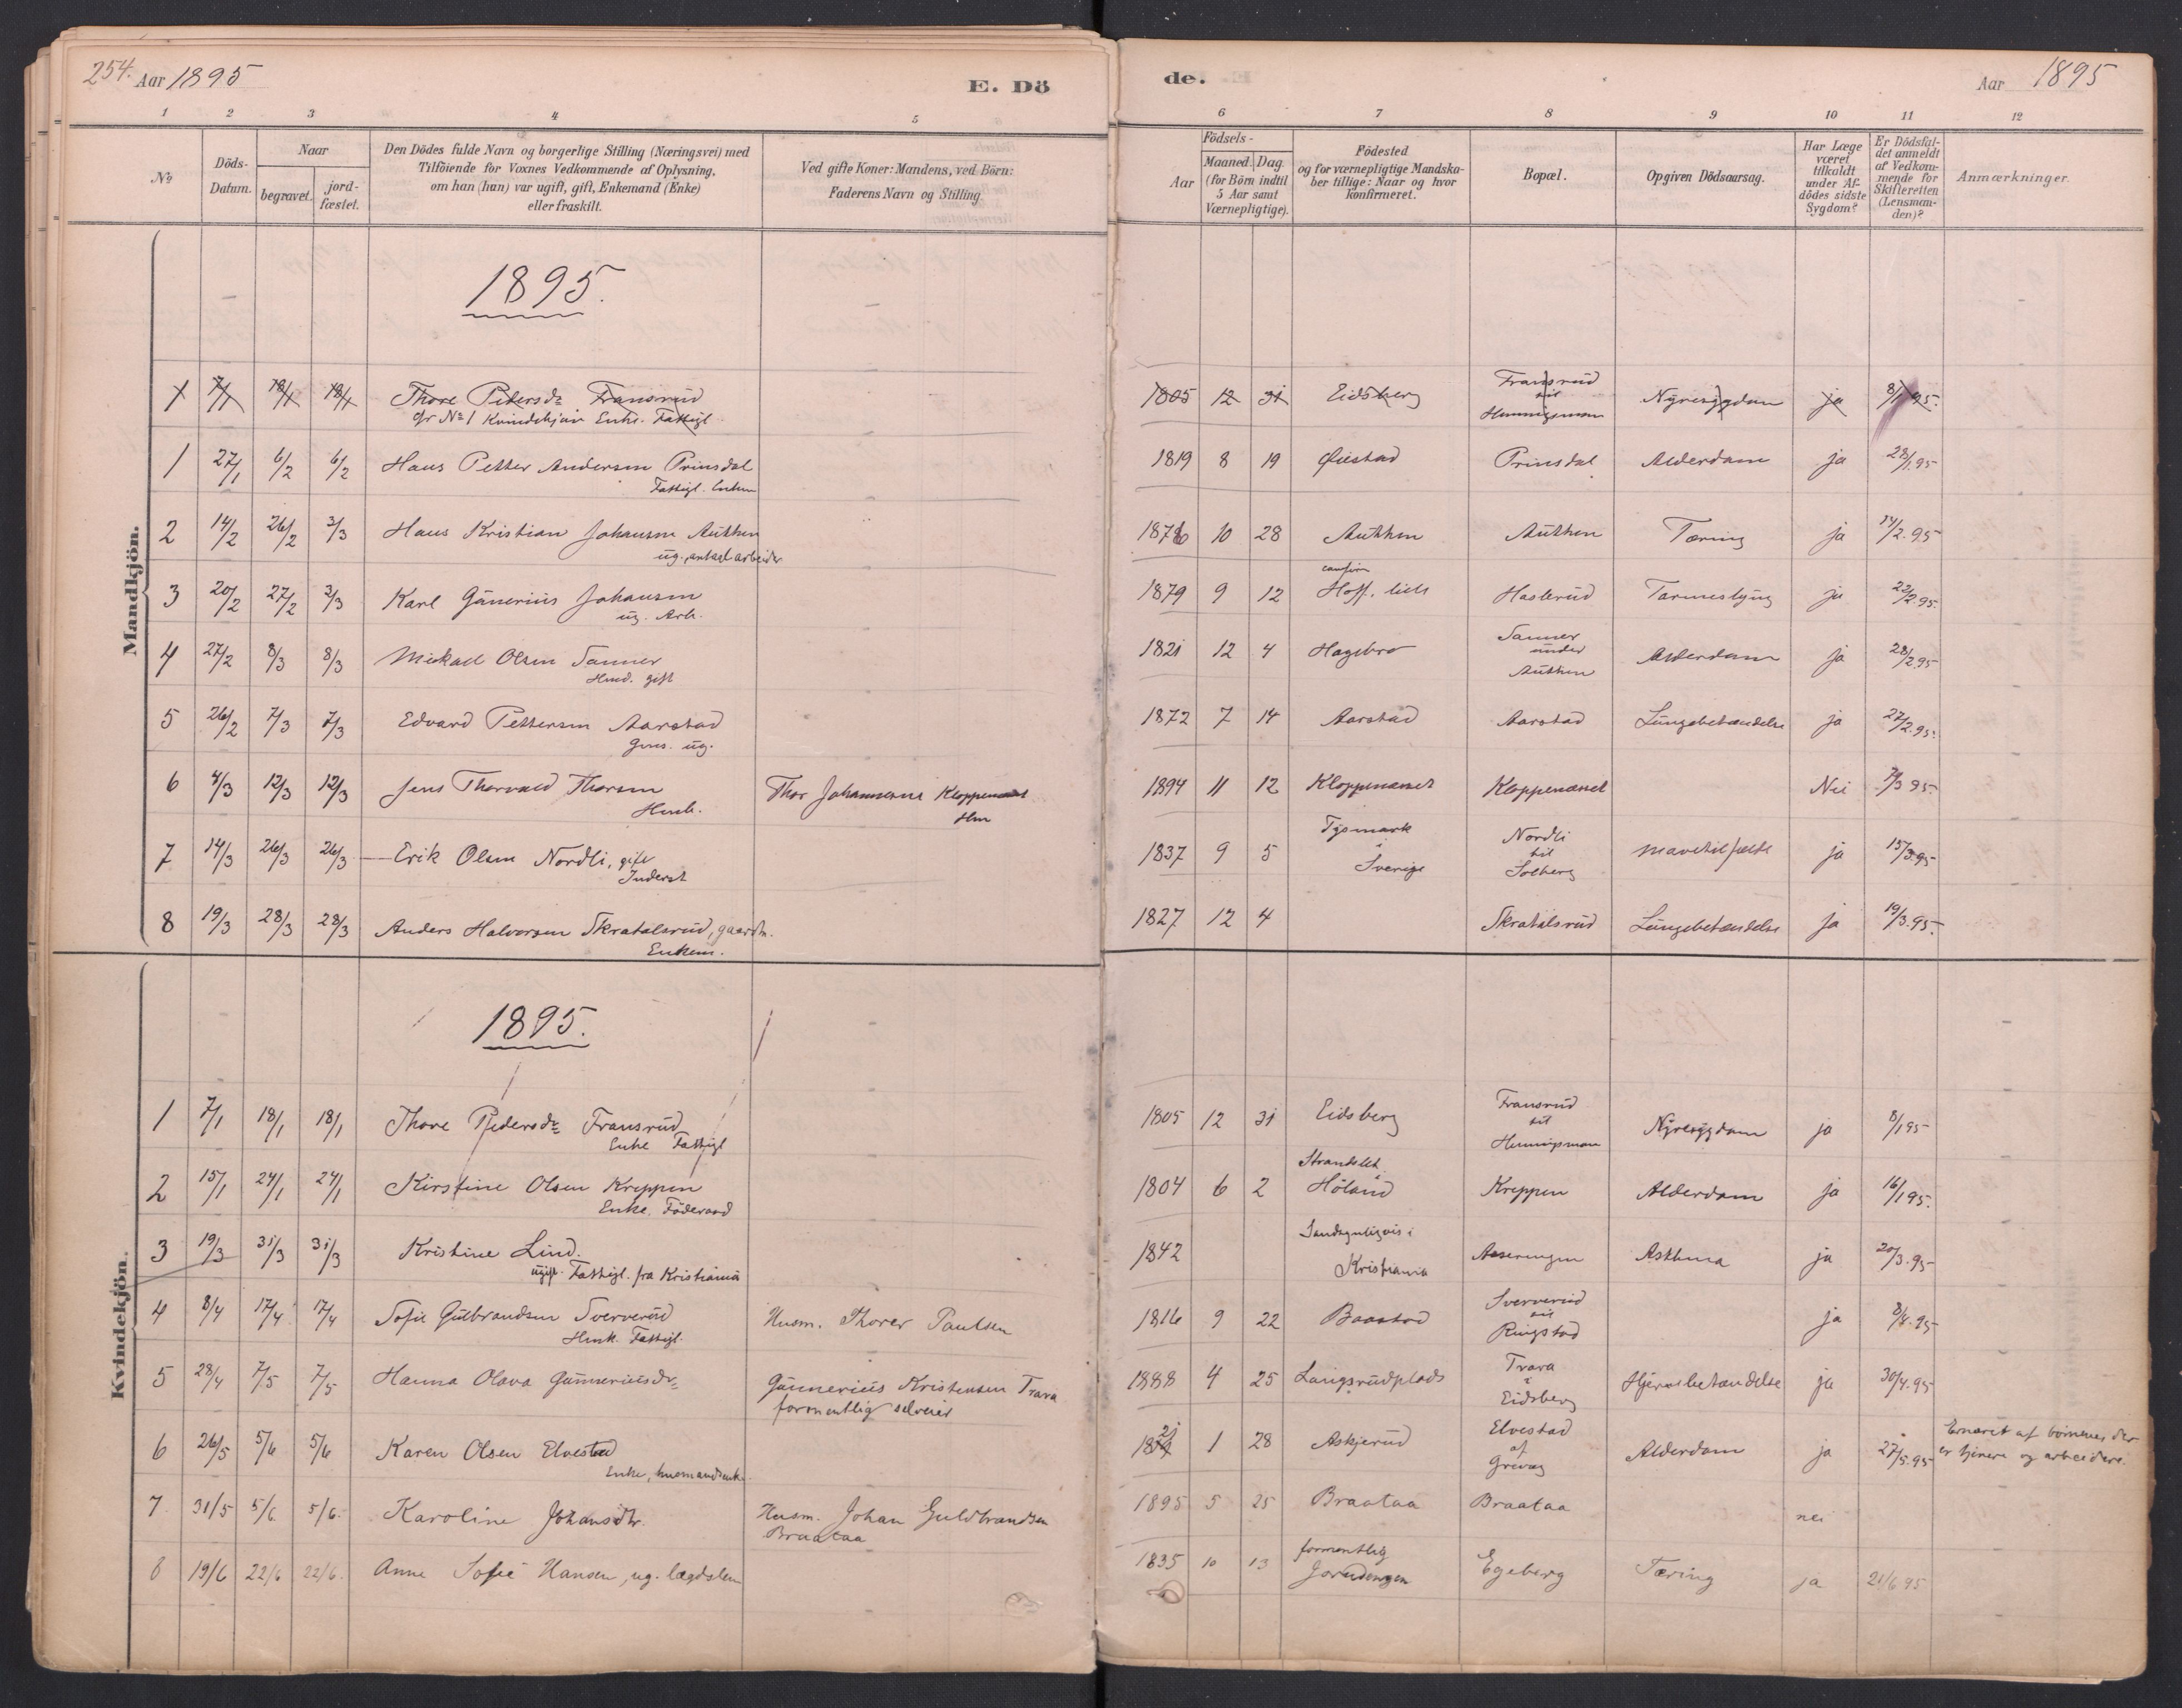 254. Aar 1895 E. Dö
de. Aar 1895
1 2 3 4 5 6 7 8 9 10 11 12
No
Döds-Datum.
Naar
begravet. jord-fæstet.
Den Dödes fulde Navn og borgerlige Stilling (Næringsvei) med
Tilföiende for Voxnes Vedkommende af Oplysning,
om han (hun) var ugift, gift, Enkemand (Enke)
eller fraskilt.
Ved gifte Koner: Mandens, ved Börn:
Faderens Navn og Stilling.
Födsels-
Aar
Maaned. Dag.
(for Börn indtil
5 Aar samt
Værnepligtige).
Födested
og for værnepligtige Mandska-
ber tillige: Naar og hvor
konfirmeret.
Bopæl.
Opgiven Dödsaarsag.
Har Læge
været
tilkaldt
under Af-
dödes sidste
Sygdom?
Er Dödsfal-
det anmeldt
af Vedkom-
mende for
Skifteretten
(Lensman-
den)?
Anmærkninger.
Mandkjön.
1895.
1 7/1 18/1 18/1 Thore Pedersdr Fransrud 1805 12 31 Eidsberg Fransrud Nyresygdom ja 8/1 95.
til
Enke. Fattigl.
1 27/1 6/2 6/2 Hans Petter Andersen Prinsdal 1819 8 19 Øiestad Prinsdal Alderdom ja 28/1 95
Fattigl.
2 14/2 26/2 3/3 Hans Kristian Johansen Authen 10 28 Authen Authen Tæring ja 14/2.95
ug.
3 20/2 27/2 Karl Gunerius Johansen 1879 9 12 Haslerud ja 22/2.95.
ug. Arb.
4 27/2 8/3 8/3 Mickael Olsen Sanner 1821 12 4 Hagebro Sanner under Authen Alderdom ja 28/2 95
Hmd. gift
5 26/2 7/3 7/3 Edvard Pettersen Aarstad 1872 7 14 Aarstad Aarstad Lungebetændelse ja 27/2.95.
ug.
6 4/3 12/3 12/3 Jens Thorvald Thorsen Thor Johannesens Kloppenæset 1894 11 12 Kloppenæset Kloppenæset Nei
Hmb.
7 14/3 26/3 26/3 Erik Olsen Nordli, gift 1837 9 5 Tysmark i Sverige Nordli til Solberg Mavetilfælde ja 15/3 95
Inderst
8 19/3 28/3 28/3 Anders Halvorsen Skratalsrud, gaardm. 1827 12 4 Skratalsrud Lungebetændelse ja 19/3.95.
Enkem.
Kvindekjön.
1895.
1 7/1 18/1 18/1 Thore Pedersdr Fransrud 1805 12 31 Eidsberg Fransrud til Nyresygdom ja 8/1 95
Enke Fattigl
2 15/1 24/1 24/1 Kirstine Olsen Kreppen 1804 6 2 Strandslet i Höland Kreppen Alderdom ja 16/1 95.
Enke. Föderaad
3 19/3 31/3 31/3 Kristine Lind. 1842 Sandsynligvis i Kristiania Asthma ja 20/3.95
ugift. Fattigl. fra Kristiania
4 8/4 17/4 17/4 Sofie Gulbrandsen Sververud Husm. Thorer Paulsen 1816 9 22 Baastad Sververud til Ringstad ja 8/4.95
Hmk. Fattigl.
5 28/4 7/5 7/5 Hanna Olava Gunneriusdr Gunnerius Kristensen Trara 1888 4 25 Langsrudplads Trara i Eidsberg Hjernebetændelse ja 30/4.95
formentlig selveier
6 26/5 5/6 5/6 Karen Olsen Elvestad 1821 1 28 Askjerud Elvestad af Alderdom ja 27/5.95 Ernæret af börnene der
Enke, husmandsenke. er tjenere og arbeidere.
7. 31/5 5/6. 5/6. Karoline Johansdtr. Husm. Johan Guldbrandsen 1895 5 25 Braataa Braataa nei
Braataa
8 19/6 22/6 22/6. Anne Sofie Hansen, ug. lægdslem 1835 10 13 formentlig Egeberg Tæring ja 21/6 95